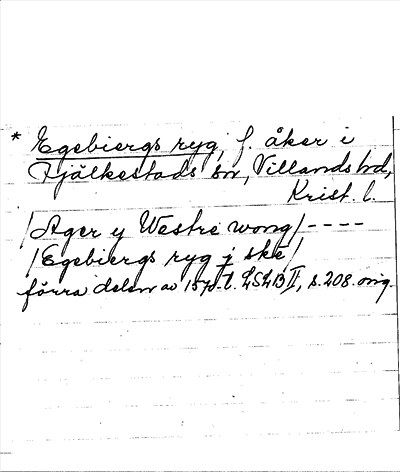 * Egebiergs ryg, f. åker i
Fjälkestads sn, Villands hd,
Krist. l.
/Ager y Westre wong/ ----
/Egebiergs ryg j ske/
förra delen av 1570-t. LSLB II, s. 208. orig.